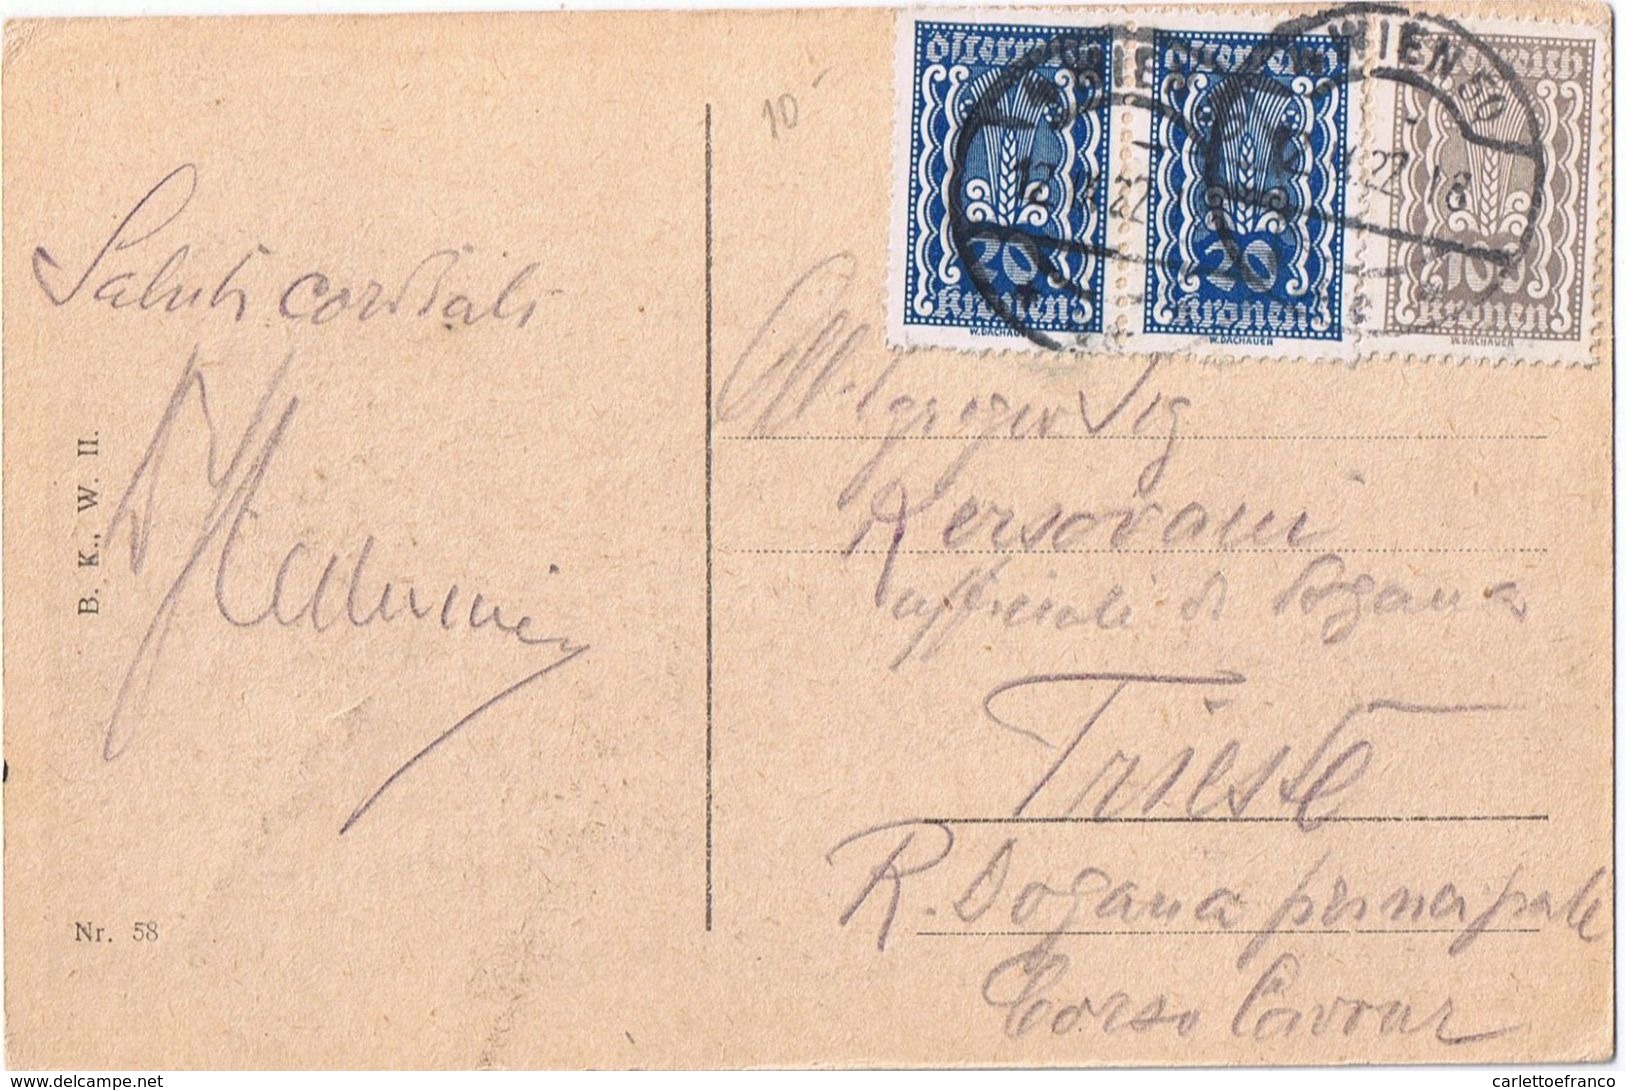 10-
österreich
20
kronen
W. DACHAUER
österreich
20
kronen
W. DACHAUER
österreich
100
kronen
W. DACHAUER
WIEN
WIEN 50
Saluti cordiali
B. K., W. II.
Nr. 58
All' Sig
Kersovani
ufficiale di Dogana
Trieste
R. Dogana principale
Corso Cavour
delcampe.net
carlettoefranco